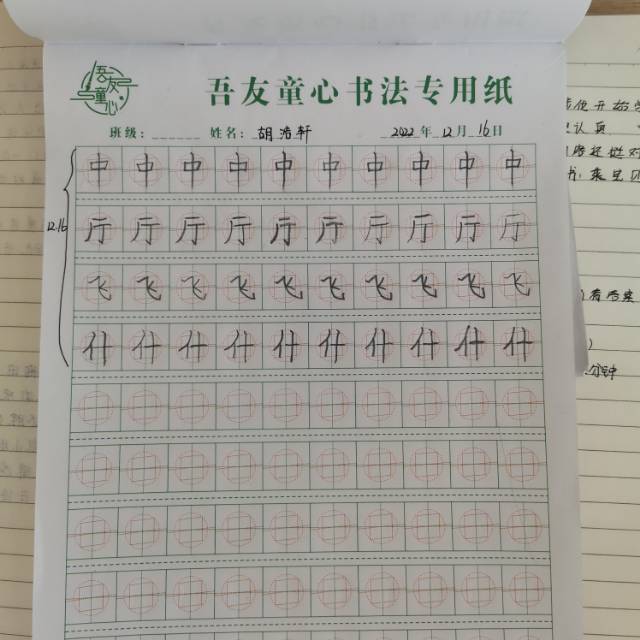 吾友童心
吾友童心书法专用纸
班级： 姓名：胡浩轩 2022年12月16日
12.16
中中中中中中中中中中
厅厅厅厅厅厅厅厅厅厅
飞飞飞飞飞飞飞飞飞飞
什什什什什什什什什什
使开始
认真
分钟